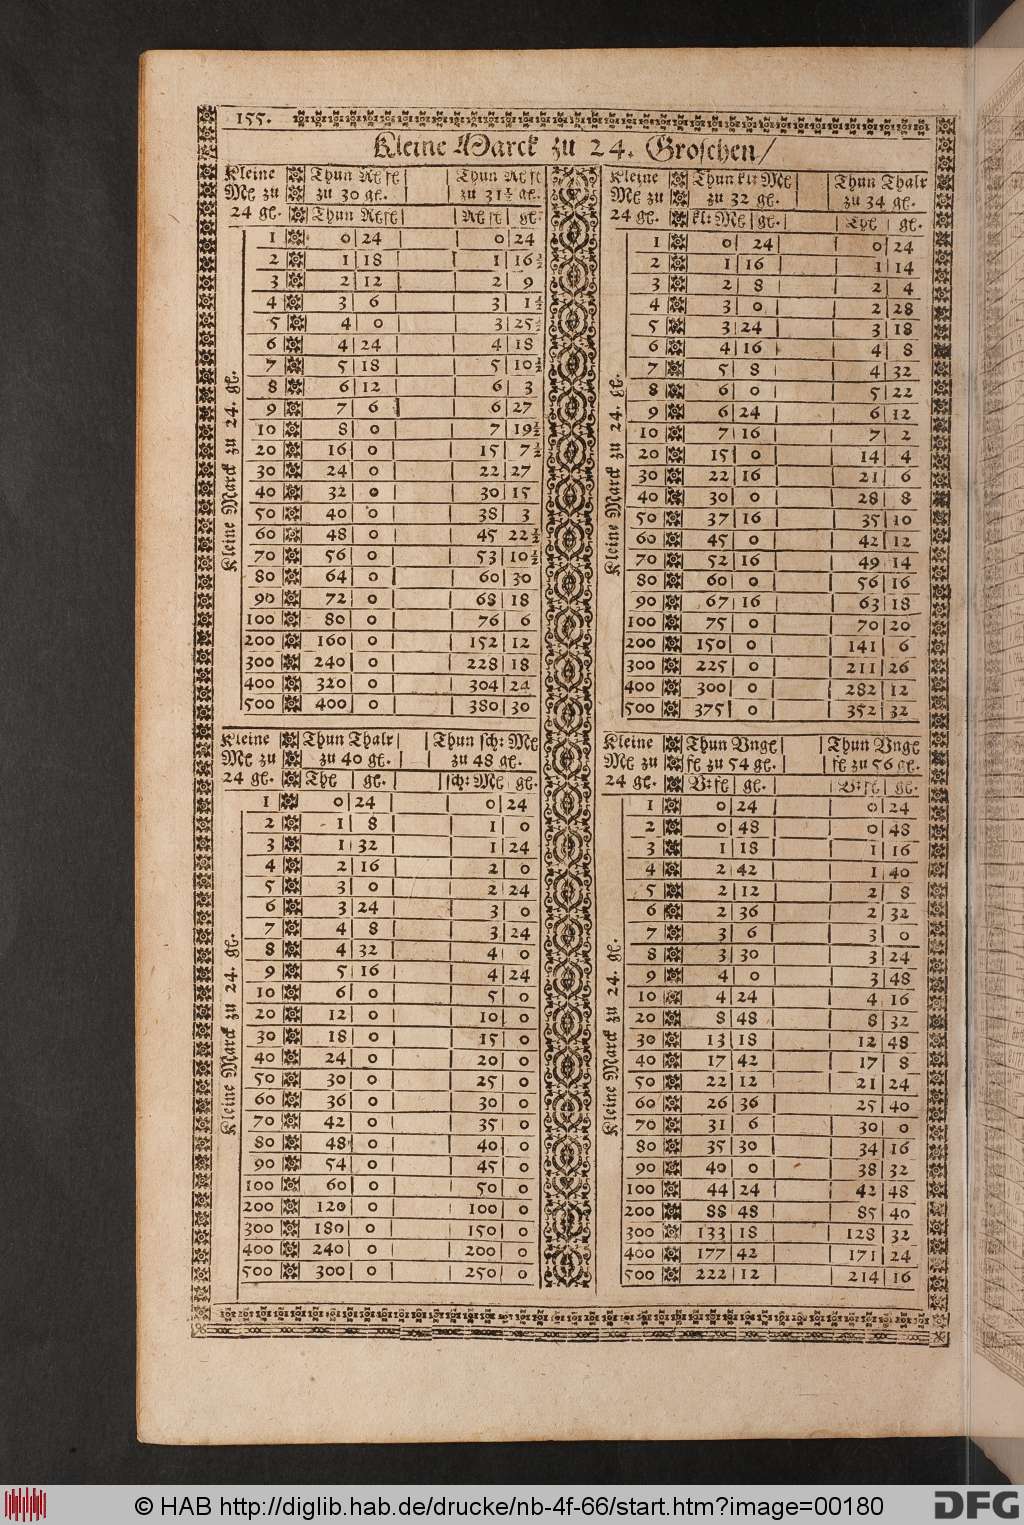 155.
Kleine Marck zu 24. Groschen/
Kleine Thun Rt ſt Thun Rt ſt
Mt zu zu 30 gt. zu 31½ gt.
24 gt. Thun Rtſt Rt ſt gt.
Kleine Marck zu 24. gt.
1 0 24 0 24
2 1 18 1 16½
3 2 12 2 9
4 3 6 3 1½
5 4 0 3 25½
6 4 24 4 18
7 5 18 5 10½
8 6 12 6 3
9 7 6 6 27
10 8 0 7 19½
20 16 0 15 7½
30 24 0 22 27
40 32 0 30 15
50 40 0 38 3
60 48 0 45 22½
70 56 0 53 10½
80 64 0 60 30
90 72 0 68 18
100 80 0 76 6
200 160 0 152 12
300 240 0 228 18
400 320 0 304 24
500 400 0 380 30
Kleine Thun kl: Mt Thun Thalr
Mt zu zu 32 gt. zu 34 gt.
24 gt. kl: Mt gt. Tht gt.
Kleine Marck zu 24. gt.
1 0 24 0 24
2 1 16 1 14
3 2 8 2 4
4 3 0 2 28
5 3 24 3 18
6 4 16 4 8
7 5 8 4 32
8 6 0 5 22
9 6 24 6 12
10 7 16 7 2
20 15 0 14 4
30 22 16 21 6
40 30 0 28 8
50 37 16 35 10
60 45 0 42 12
70 52 16 49 14
80 60 0 56 16
90 67 16 63 18
100 75 0 70 20
200 150 0 141 6
300 225 0 211 26
400 300 0 282 12
500 375 0 352 32
Kleine Thun Thalr Thun ſch: Mt
Mt zu zu 40 gt. zu 48 gt.
24 gt. Tht gt. ſch: Mt gt.
Kleine Marck zu 24. gt.
1 0 24 0 24
2 1 8 1 0
3 1 32 1 24
4 2 16 2 0
5 3 0 2 24
6 3 24 3 0
7 4 8 3 24
8 4 32 4 0
9 5 16 4 24
10 6 0 5 0
20 12 0 10 0
30 18 0 15 0
40 24 0 20 0
50 30 0 25 0
60 36 0 30 0
70 42 0 35 0
80 48 0 40 0
90 54 0 45 0
100 60 0 50 0
200 120 0 100 0
300 180 0 150 0
400 240 0 200 0
500 300 0 250 0
Kleine Thun Vngt Thun Vngt
Mt zu ſt zu 54 gt. ſt zu 56 gt.
24 gt. V: ſt gt. V: ſt gt.
Kleine Marck zu 24. gt.
1 0 24 0 24
2 0 48 0 48
3 1 18 1 16
4 2 42 1 40
5 2 12 2 8
6 2 36 2 32
7 3 6 3 0
8 3 30 3 24
9 4 0 3 48
10 4 24 4 16
20 8 48 8 32
30 13 18 12 48
40 17 42 17 8
50 22 12 21 24
60 26 36 25 40
70 31 6 30 0
80 35 30 34 16
90 40 0 38 32
100 44 24 42 48
200 88 48 85 40
300 133 18 128 32
400 177 42 171 24
500 222 12 214 16
© HAB http://diglib.hab.de/drucke/nb-4f-66/start.htm?image=00180
DFG